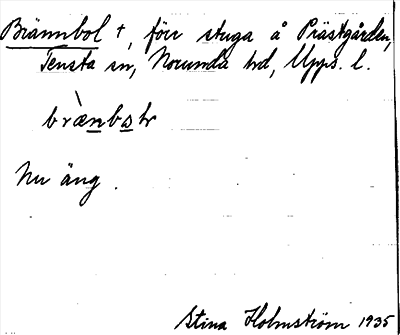 Brännbol †, förr stuga å Prästgården,
Tensta sn, Norunda hd, Upps. l.
Nu äng.
Stina Holmström 1935